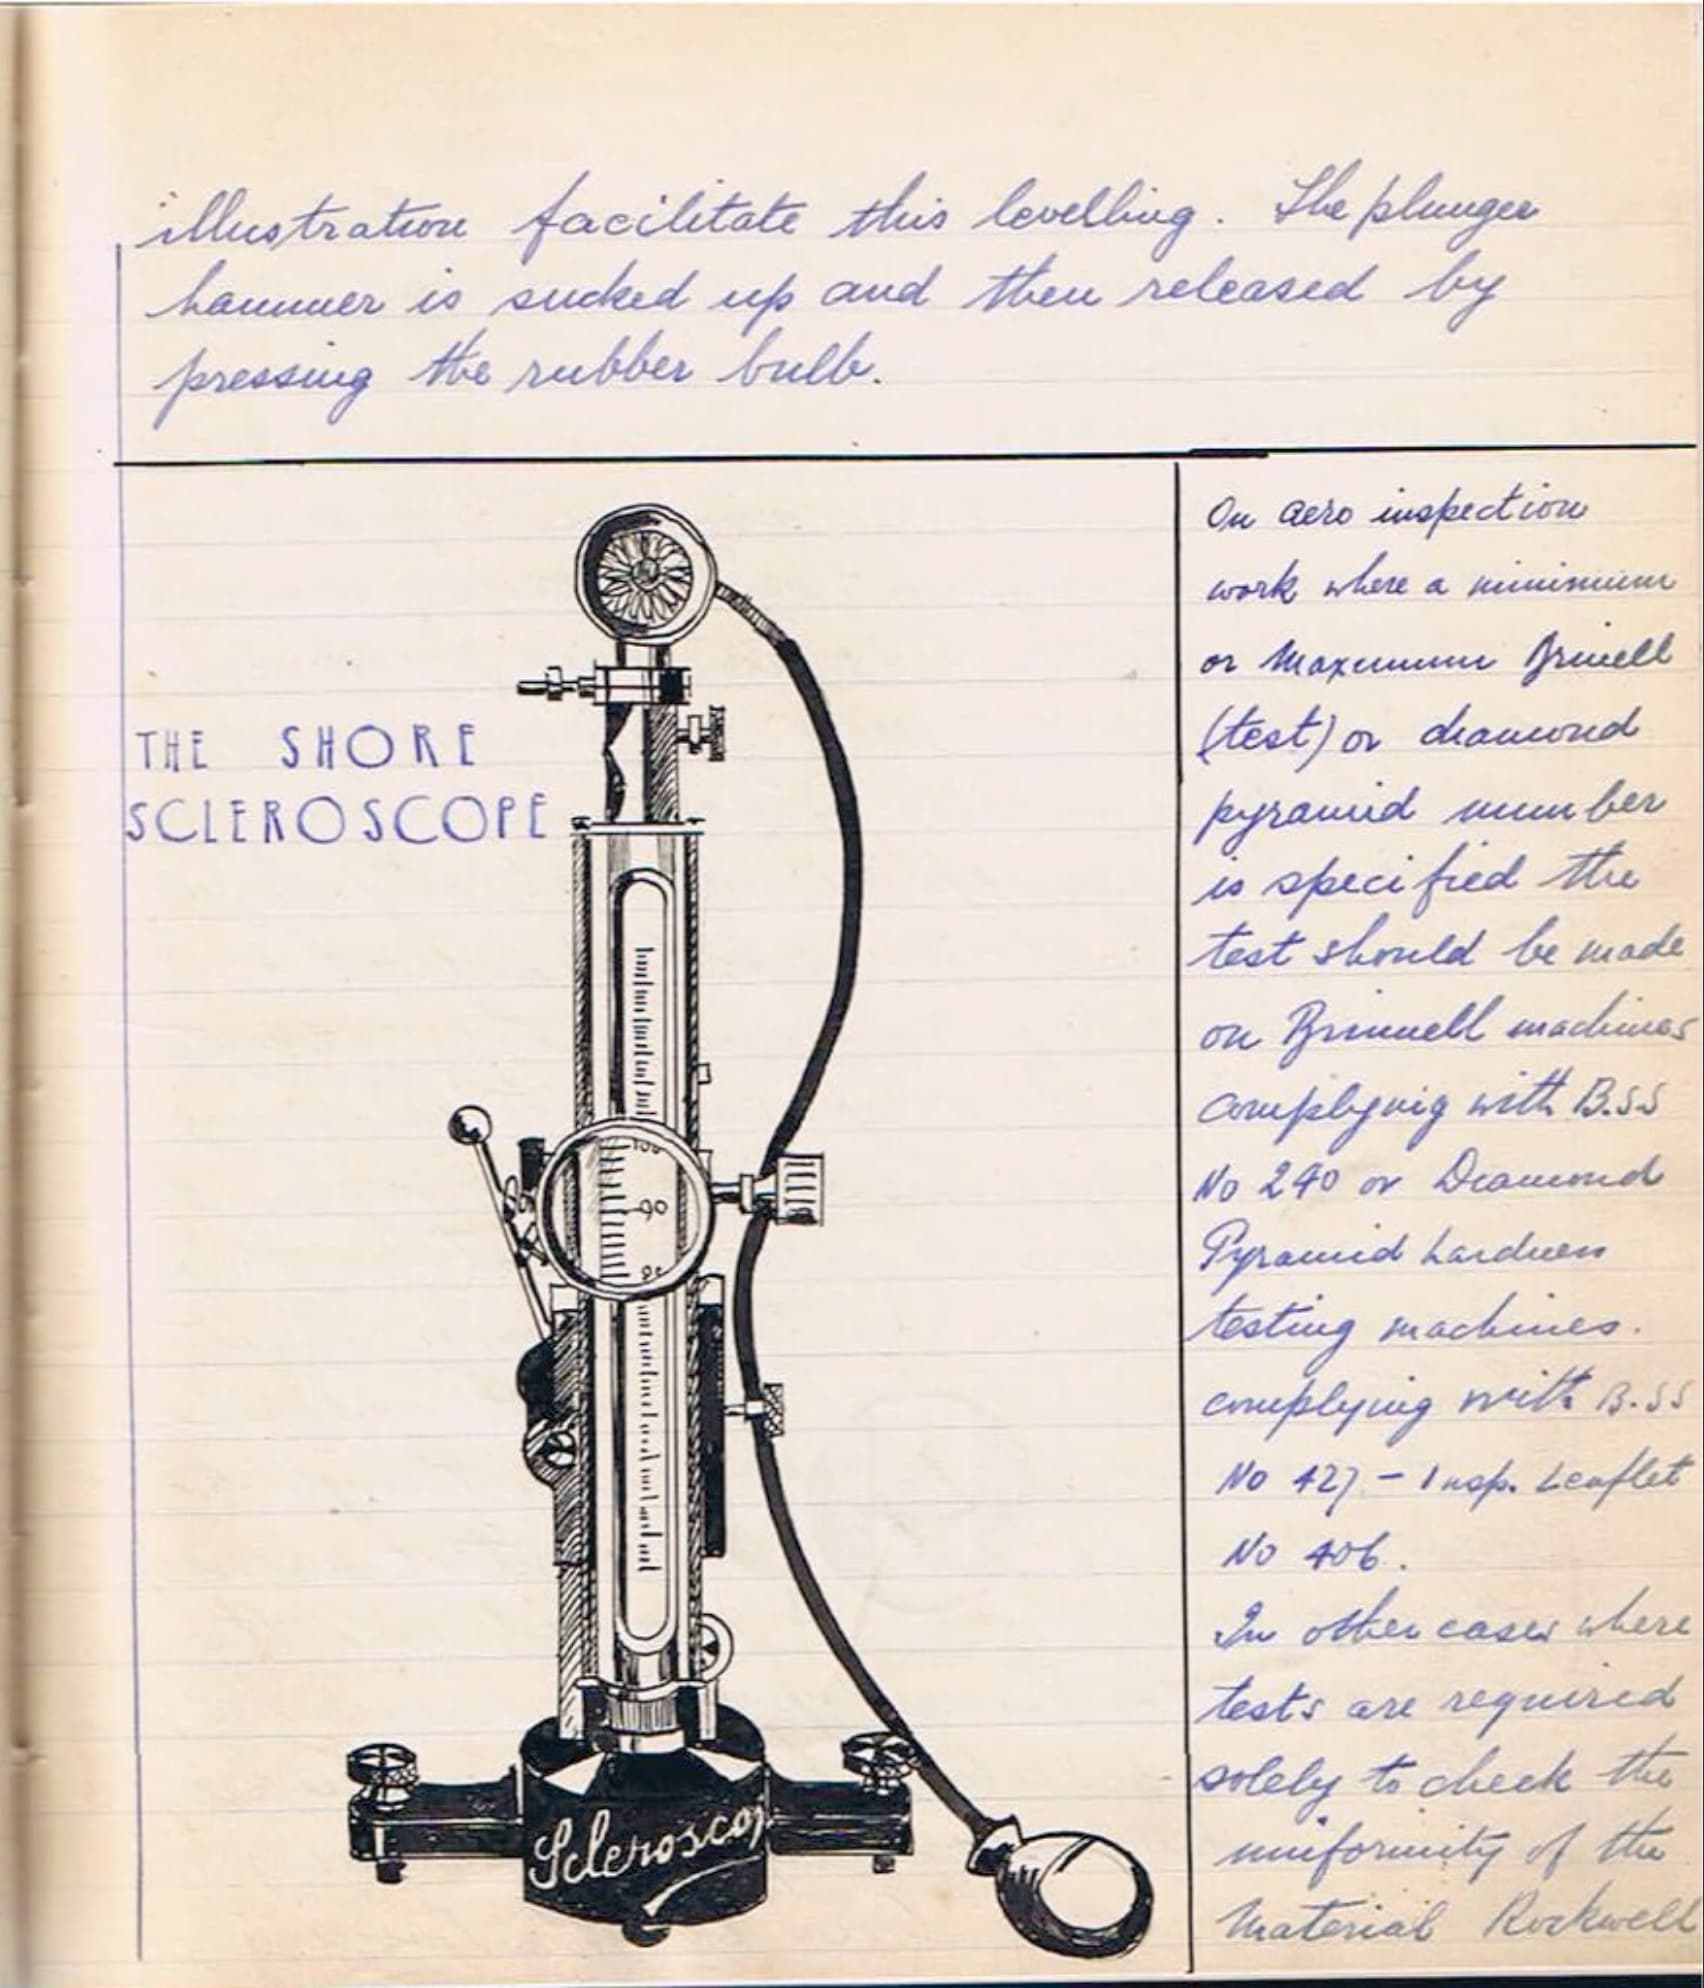 illustration facilitate this levelling. The plunger
hammer is sucked up and then released by
pressing the rubber bulb.
THE SHORE
SCLEROSCOPE
100
90
80
Scleroscop
On aero inspection
work where a minimum
or Maximum Brinell
(test) or diamond
pyramid number
is specified the
test should be made
on Brinnell machines
complying with B.SS
No 240 or Diamond
Pyramid hardness
testing machines.
complying with B.SS
No 427 – Insp. Leaflet
No 406.
In other cases where
tests are required
solely to check the
uniformity of the
Material Rockwell